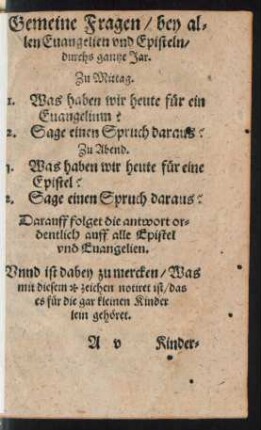 Gemeine Fragen / bey al-
len Euangelien vnd Episteln/
durchs gantze Jar.
Zu Mittag.
1. Was haben wir heute für ein
Euangelium?
2. Sage einen Spruch daraus?
Zu Abend.
1. Was haben wir heute für eine
Epistel?
2. Sage einen Spruch daraus?
Darauff folget die antwort or-
dentlich auff alle Epistel
vnd Euangelien.
Vnnd ist dabey zu mercken / Was
mit diesem * zeichen notiret ist / das
es für die gar kleinen Kinder
lein gehöret.
A v Kinder-